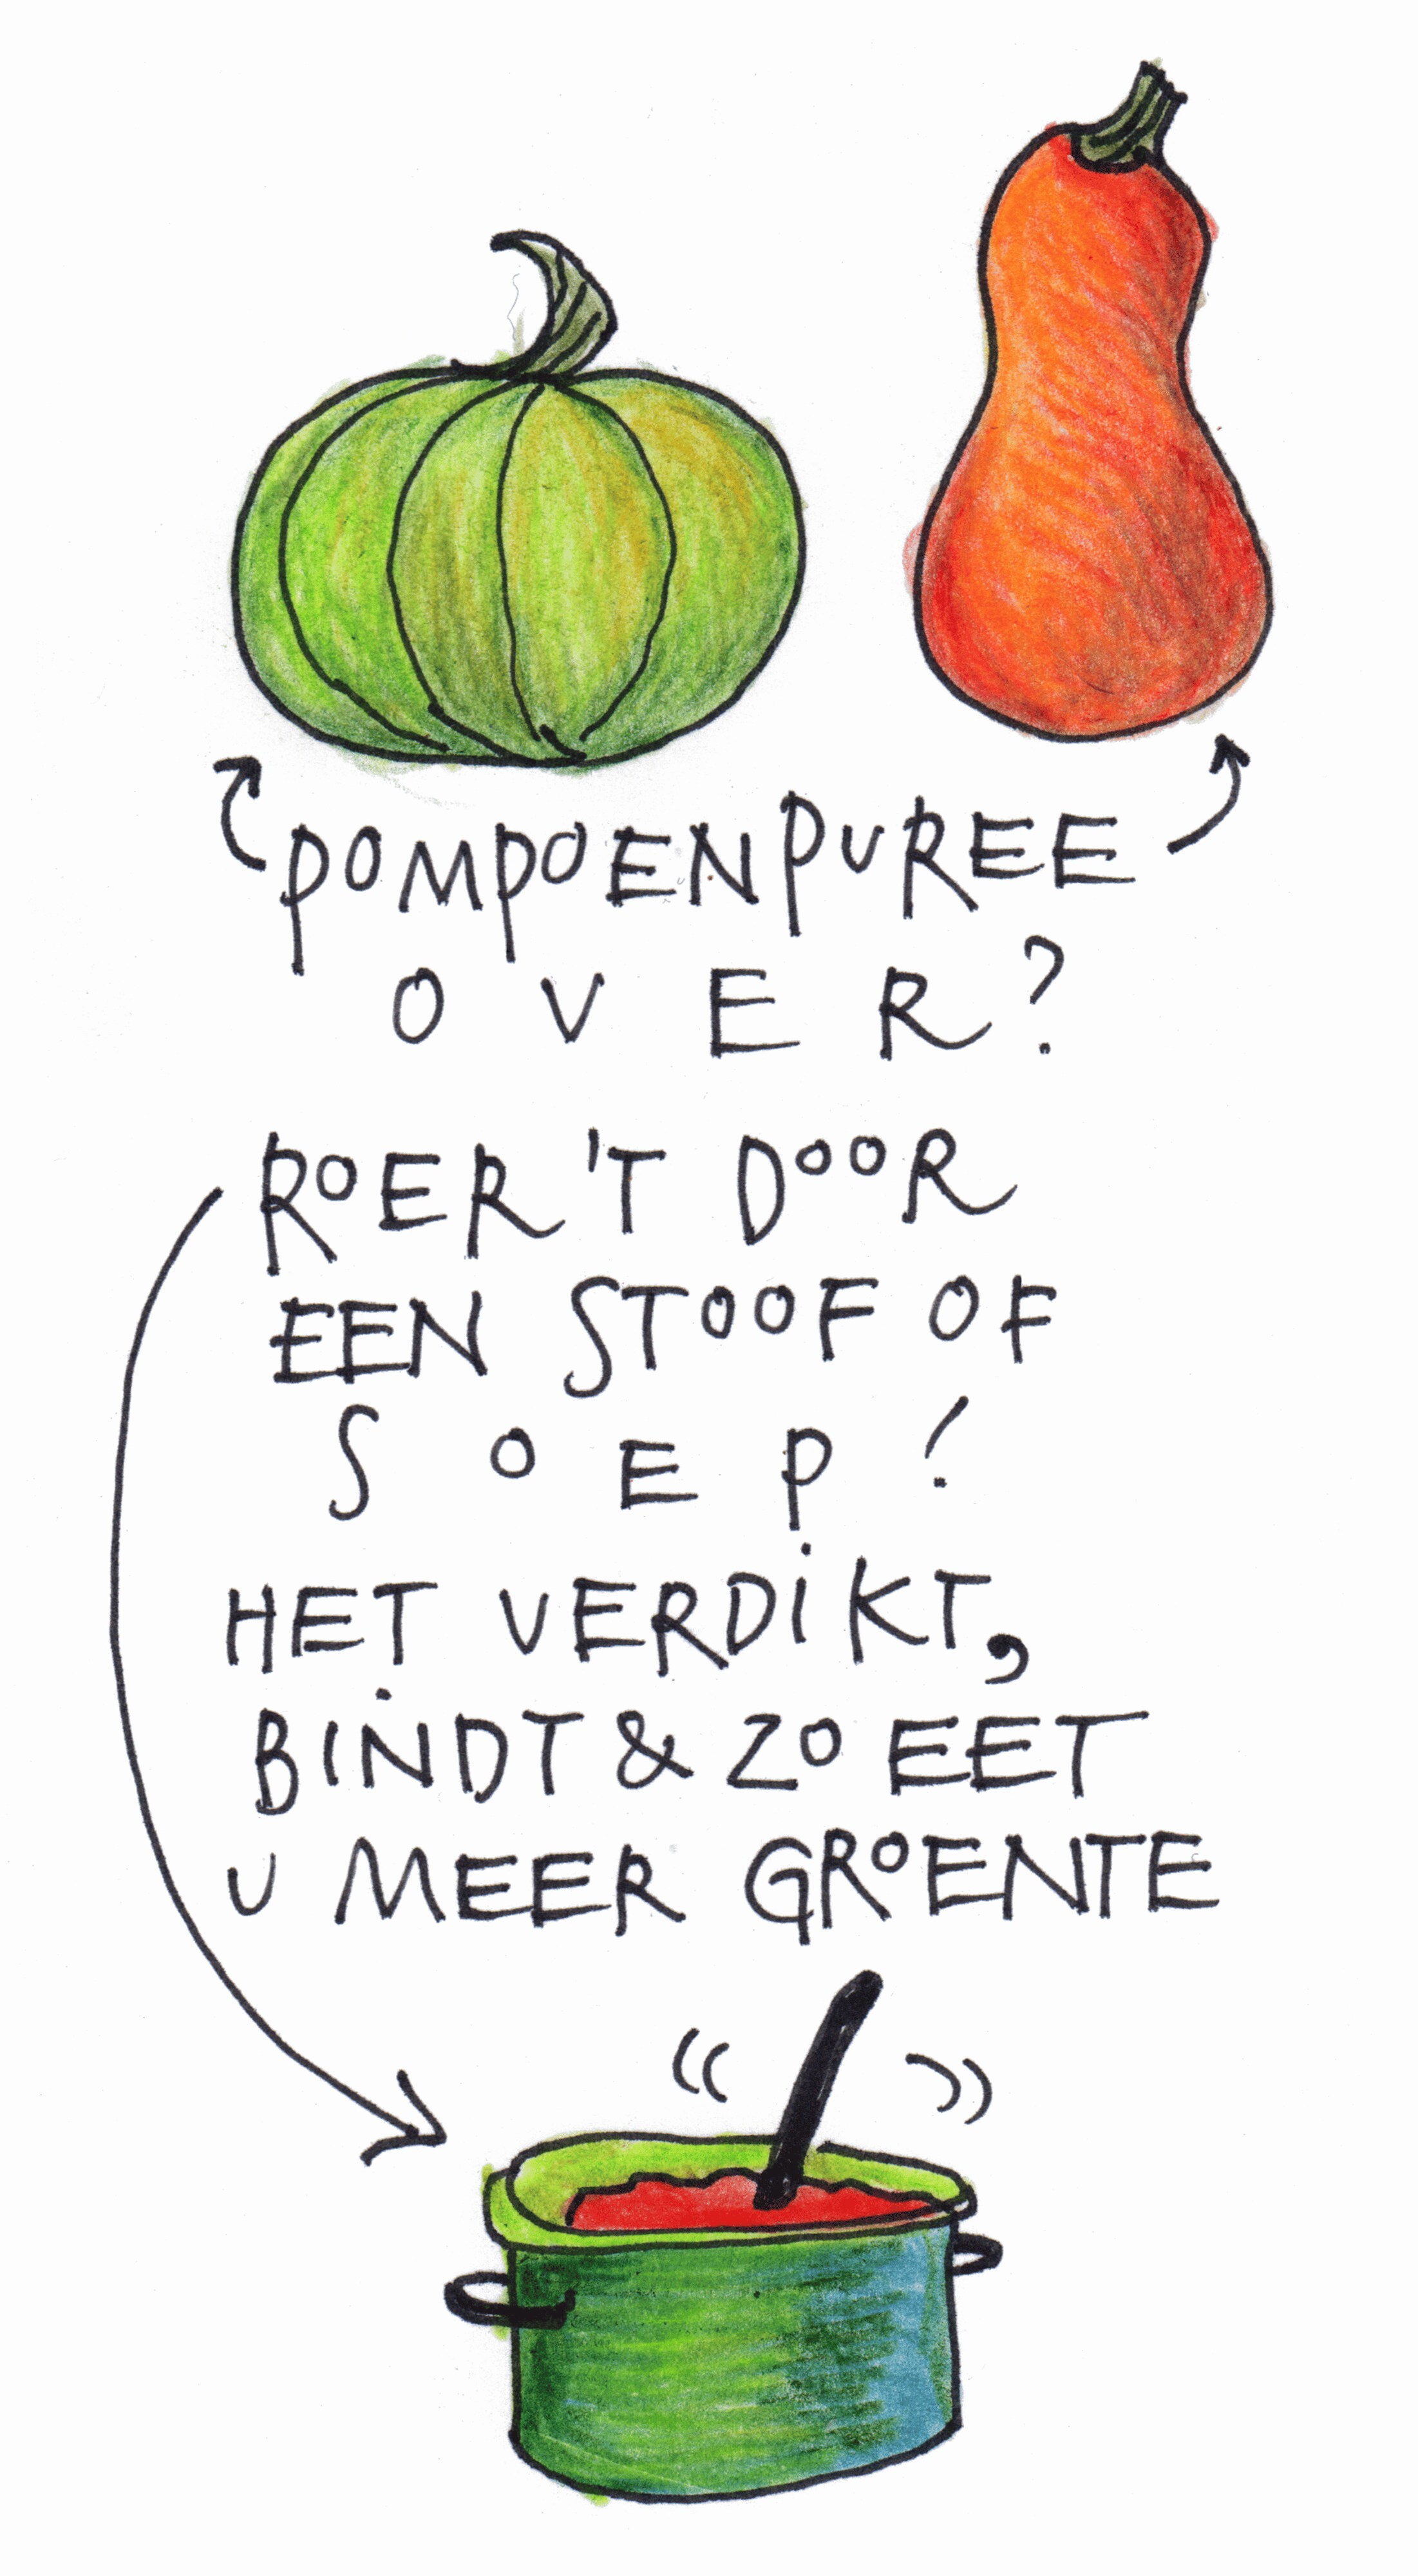 POMPOENPUREE
OVER?
ROER'T DOOR
EEN STOOF OF
SOEP!
HET VERDIKT,
BINDT & ZO EET
U MEER GROENTE